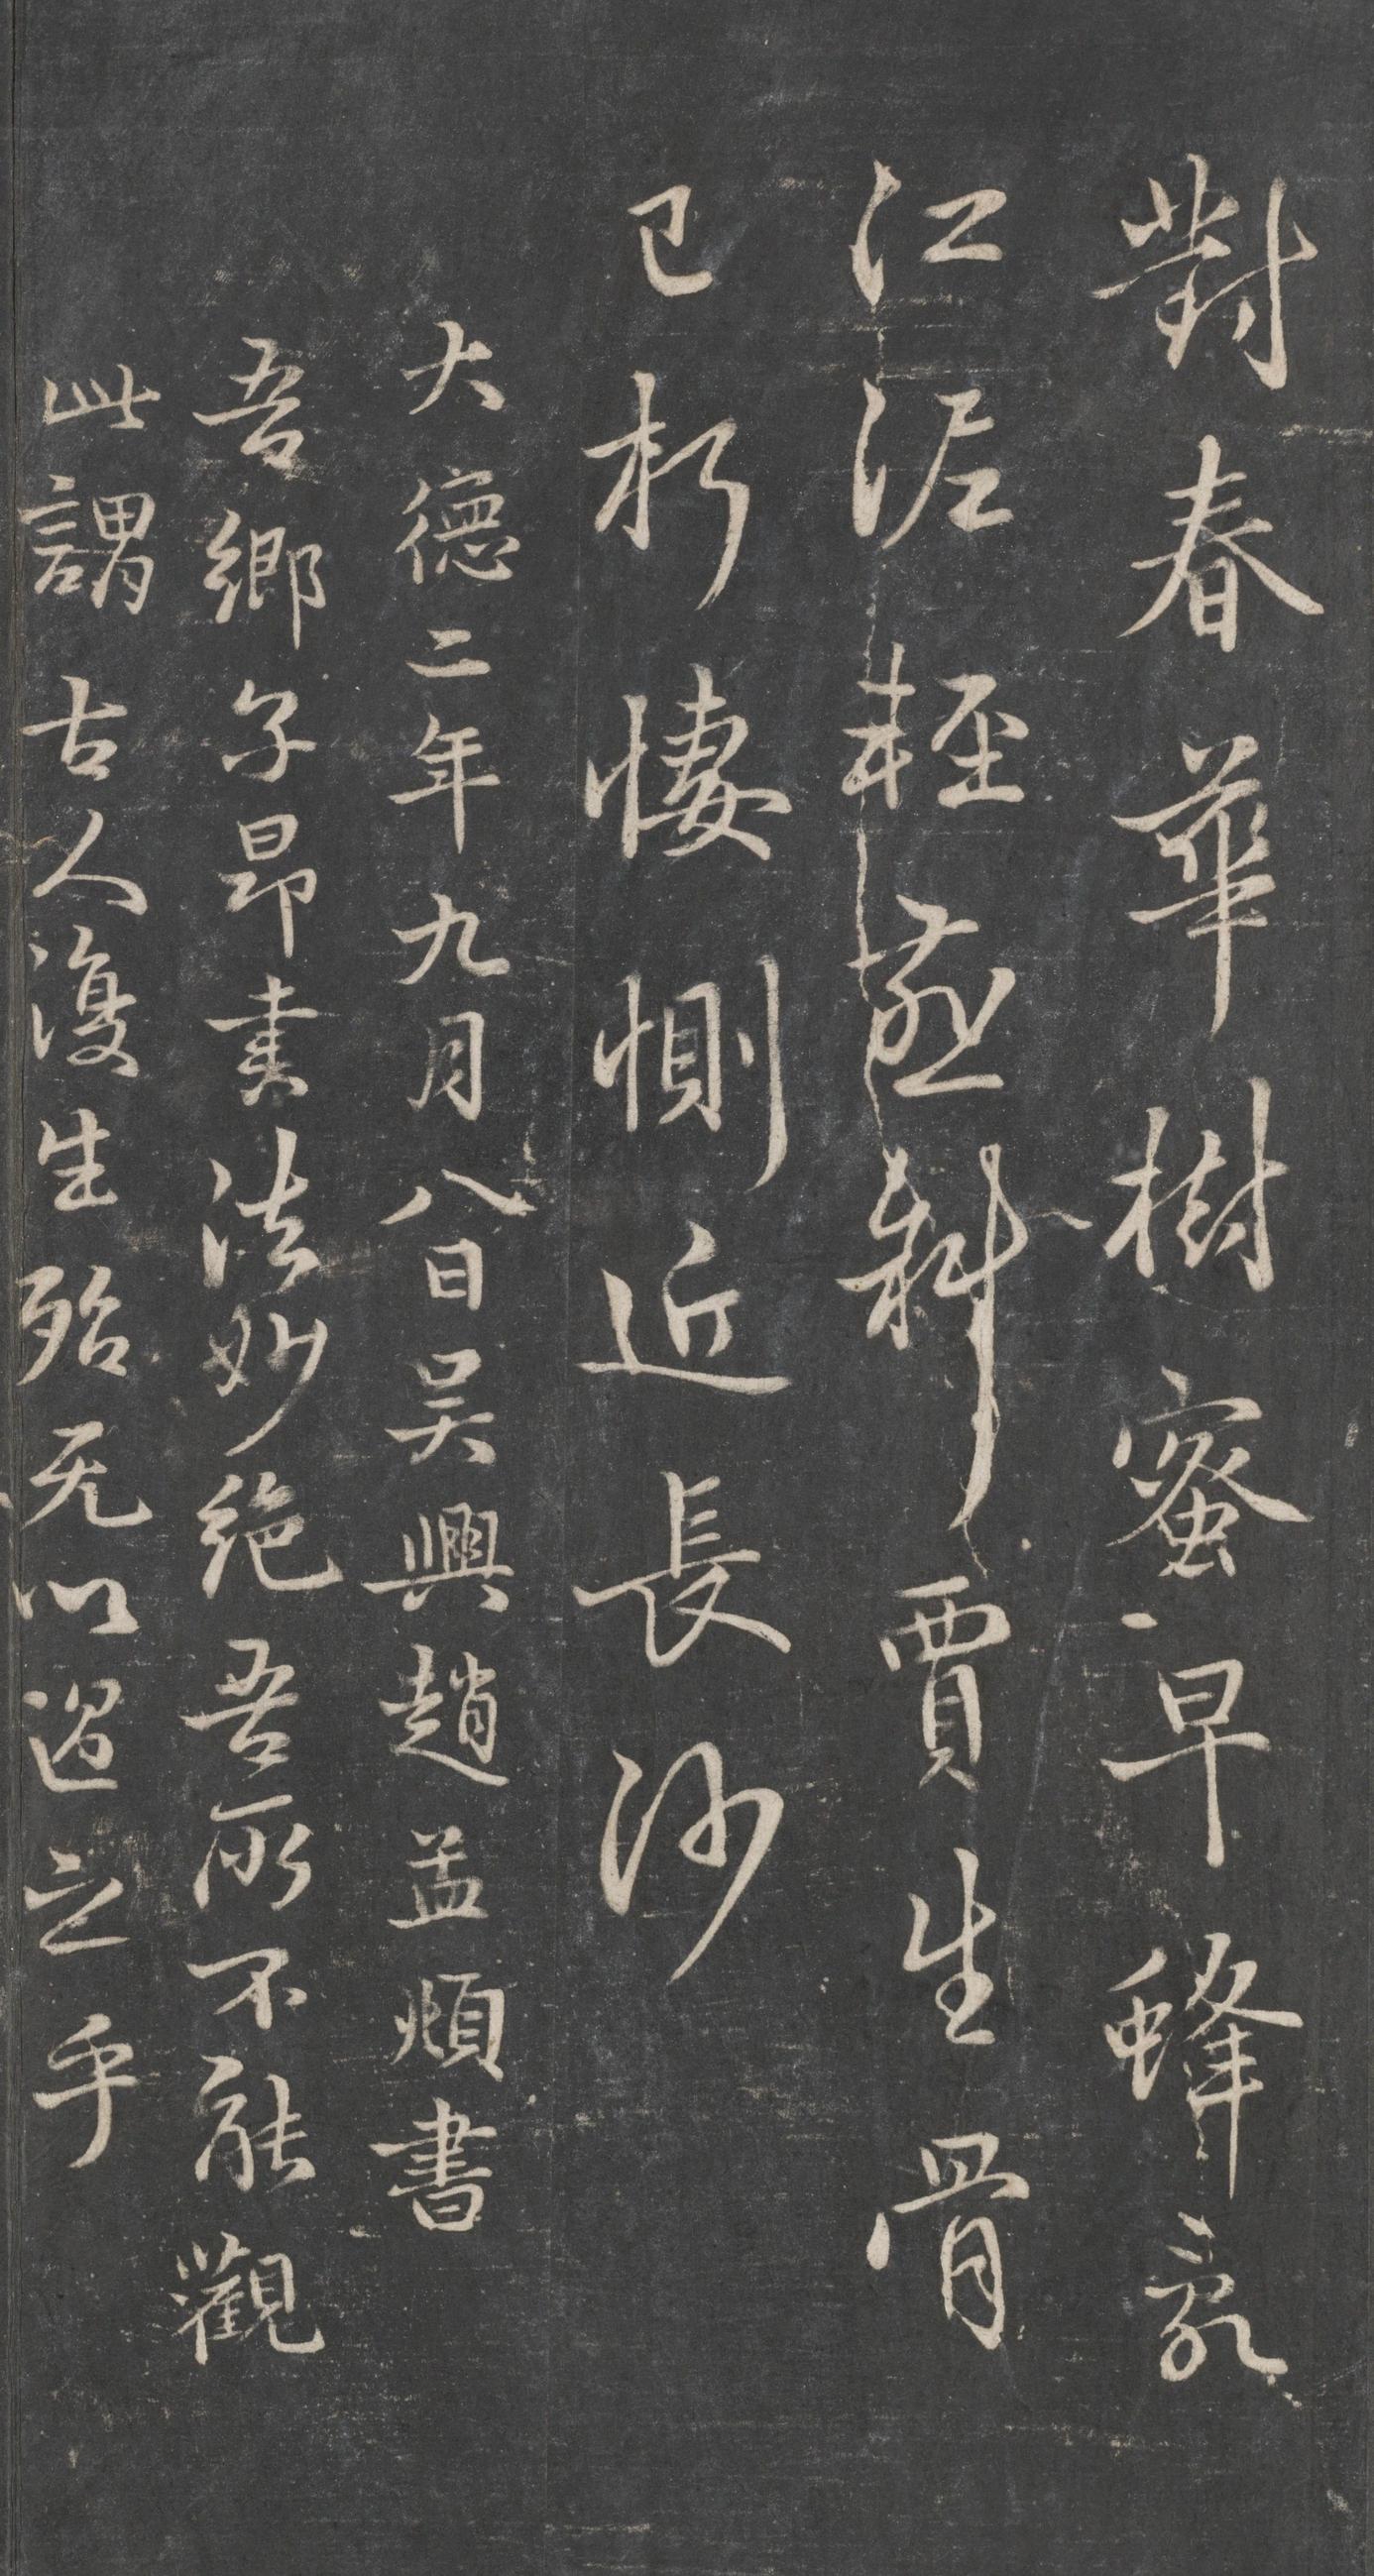 對春華樹蜜早蜂亂
江泥輕燕斜賈生骨
已朽悽惻近長沙
大德二年九月八日吴興趙孟頫書
吾鄉子昂書法妙絶吾所不能觀
此謂古人復生殆无以過之乎